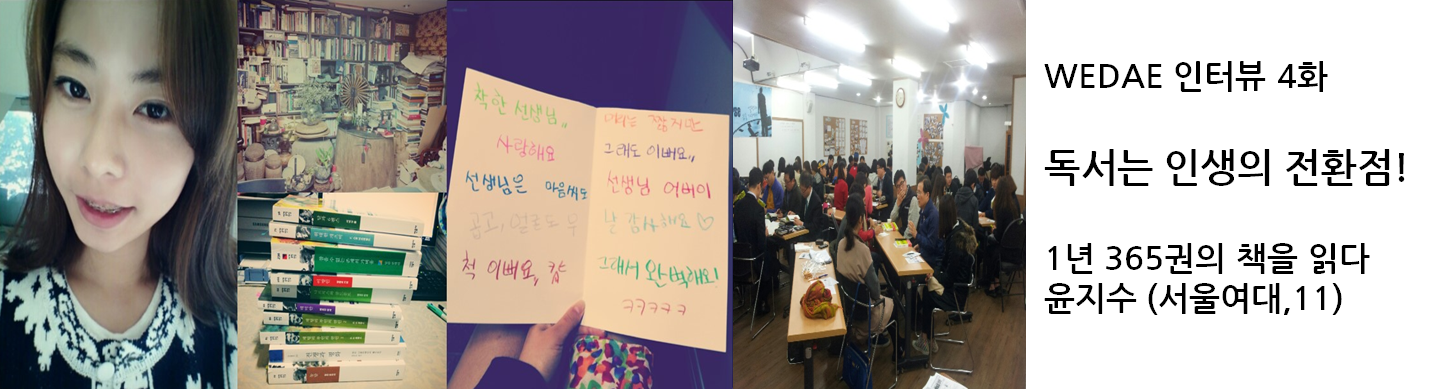 착한 선생님,,
사랑해요
선생님은 마음씨도
곱고, 얼굴도 무
척 이뻐요, 캬
키는 짧지만
그래도 이뻐요,,
선생님 어버이
난 감사해요♡
그래서 완벽해요!
ㅋㅋㅋㅋㅋ
WEDAE 인터뷰 4화
독서는 인생의 전환점!
1년 365권의 책을 읽다
윤지수 (서울여대,11)